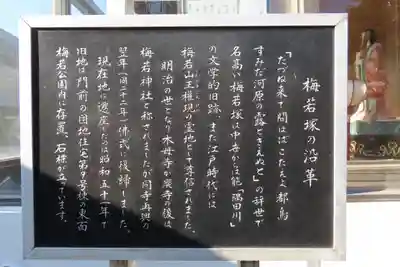 梅若塚の沿革
「たづね来て問はばこたえよ都鳥
すみだ河原の露ときえぬと」の辞世で
名高い梅若塚は中世からは能「隅田川」
の文学的旧跡、また江戸時代には
梅若山王権現の霊地として尊信されました。
明治の世となり木母寺が廃寺の後は
梅若神社と称されましたが同寺再興の
翌年(同二十二年)佛式に復帰しました。
現在地に遷座したのは昭和五十一年で
旧地は門前の団地住宅第9号棟の東面
梅若公園内に存置、石標が立っています。